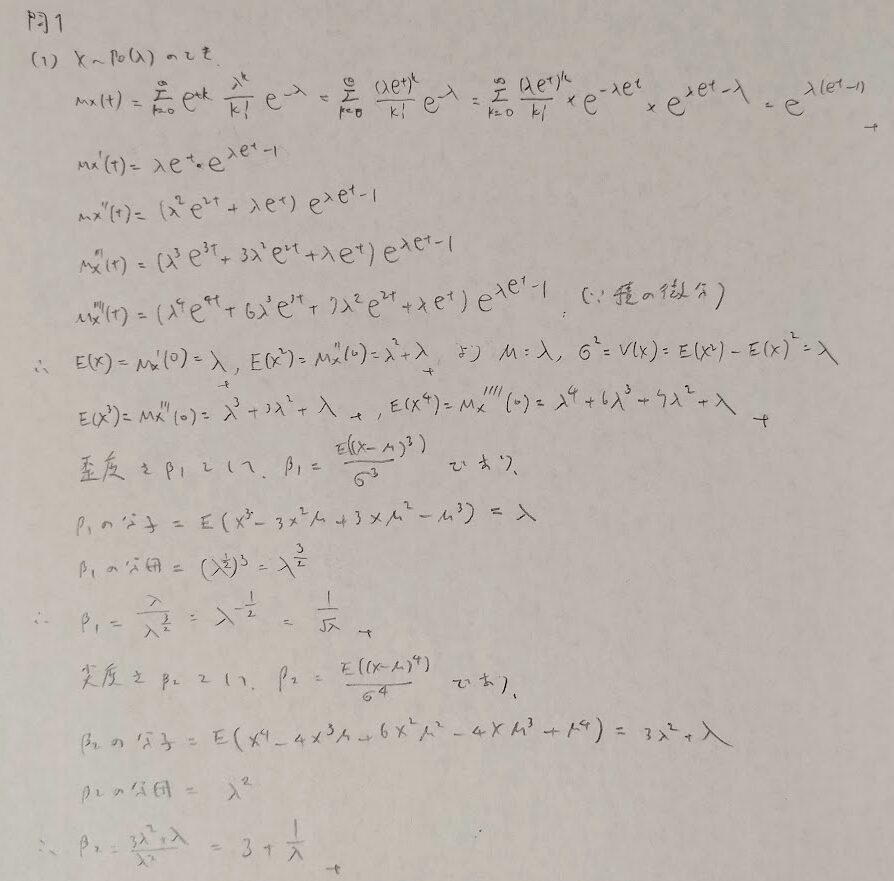 問1
(1) X~Po(λ) のとき.
Mx(t) = Σ_{k=0}^{∞} e^{tk} λ^k/k! e^{-λ} = Σ_{k=0}^{∞} (λe^t)^k/k! e^{-λ} = Σ_{k=0}^{∞} (λe^t)^k/k! × e^{-λe^t} × e^{λe^t-λ} = e^{λ(e^t-1)}
Mx'(t) = λe^t・e^{λe^t-1}
Mx''(t) = (λ²e^{2t} + λe^t) e^{λe^t-1}
Mx'''(t) = (λ³e^{3t} + 3λ²e^{2t} + λe^t) e^{λe^t-1}
Mx''''(t) = (λ⁴e^{4t} + 6λ³e^{3t} + 7λ²e^{2t} + λe^t) e^{λe^t-1}. (∵ 積の微分)
∴ E(X) = Mx'(0) = λ, E(X²) = Mx''(0) = λ²+λ より μ = λ, σ² = V(X) = E(X²) - E(X)² = λ
E(X³) = Mx'''(0) = λ³ + 3λ² + λ, E(X⁴) = Mx''''(0) = λ⁴ + 6λ³ + 7λ² + λ
歪度をβ₁として、β₁ = E((X-μ)³)/σ³ であり、
β₁の分子 = E(X³ - 3X²μ + 3Xμ² - μ³) = λ
β₁の分母 = (λ^{1/2})³ = λ^{3/2}
∴ β₁ = λ/λ^{3/2} = λ^{-1/2} = 1/√λ
尖度をβ₂として、β₂ = E((X-μ)⁴)/σ⁴ であり、
β₂の分子 = E(X⁴ - 4X³μ + 6X²μ² - 4Xμ³ + μ⁴) = 3λ² + λ
β₂の分母 = λ²
∴ β₂ = 3λ²+λ/λ² = 3 + 1/λ